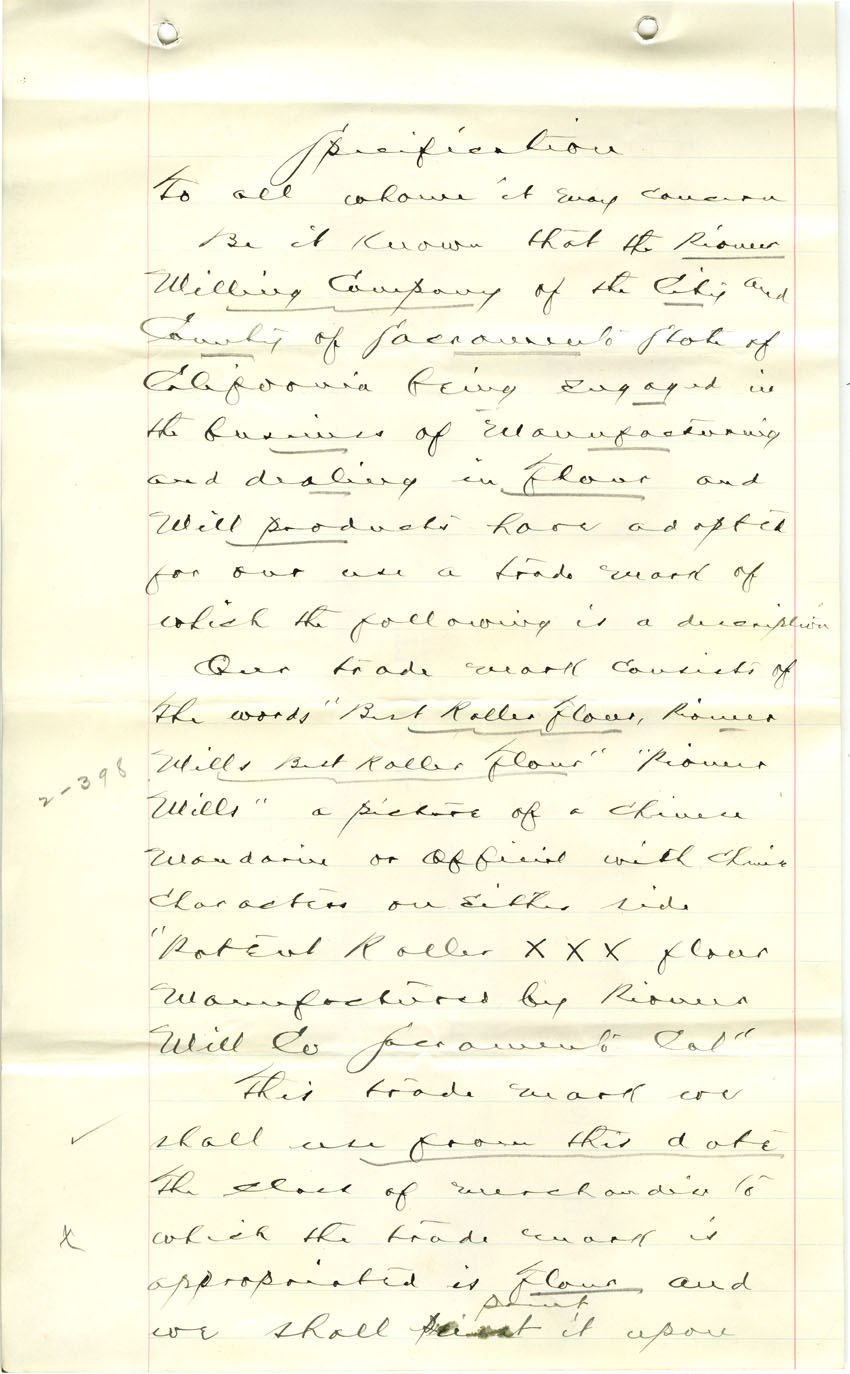 Specification
To all whome it may concern
Be it Known that the Pioneer
Milling Company of the City and
County of Sacramento State of
California being engaged in
the business of Manufacturing
and dealing in flour and
Mill products have adopted
for our use a trade mark of
which the following is a description
Our trade mark consists of
the words "Best Roller flour, Pioneer
Mills Best Roller flour" "Pioneer
2-398
Mills" a picture of a Chinese
Mandarin or Official with Chinese
Characters on Either side
"Patent Roller XXX flour
Manufactured by Pioneer
Mill Co Sacramento Cal"
This trade mark we
shall use from this date
The class of merchandise to
x which the trade mark is
appropriated is flour and
print
we shall it upon